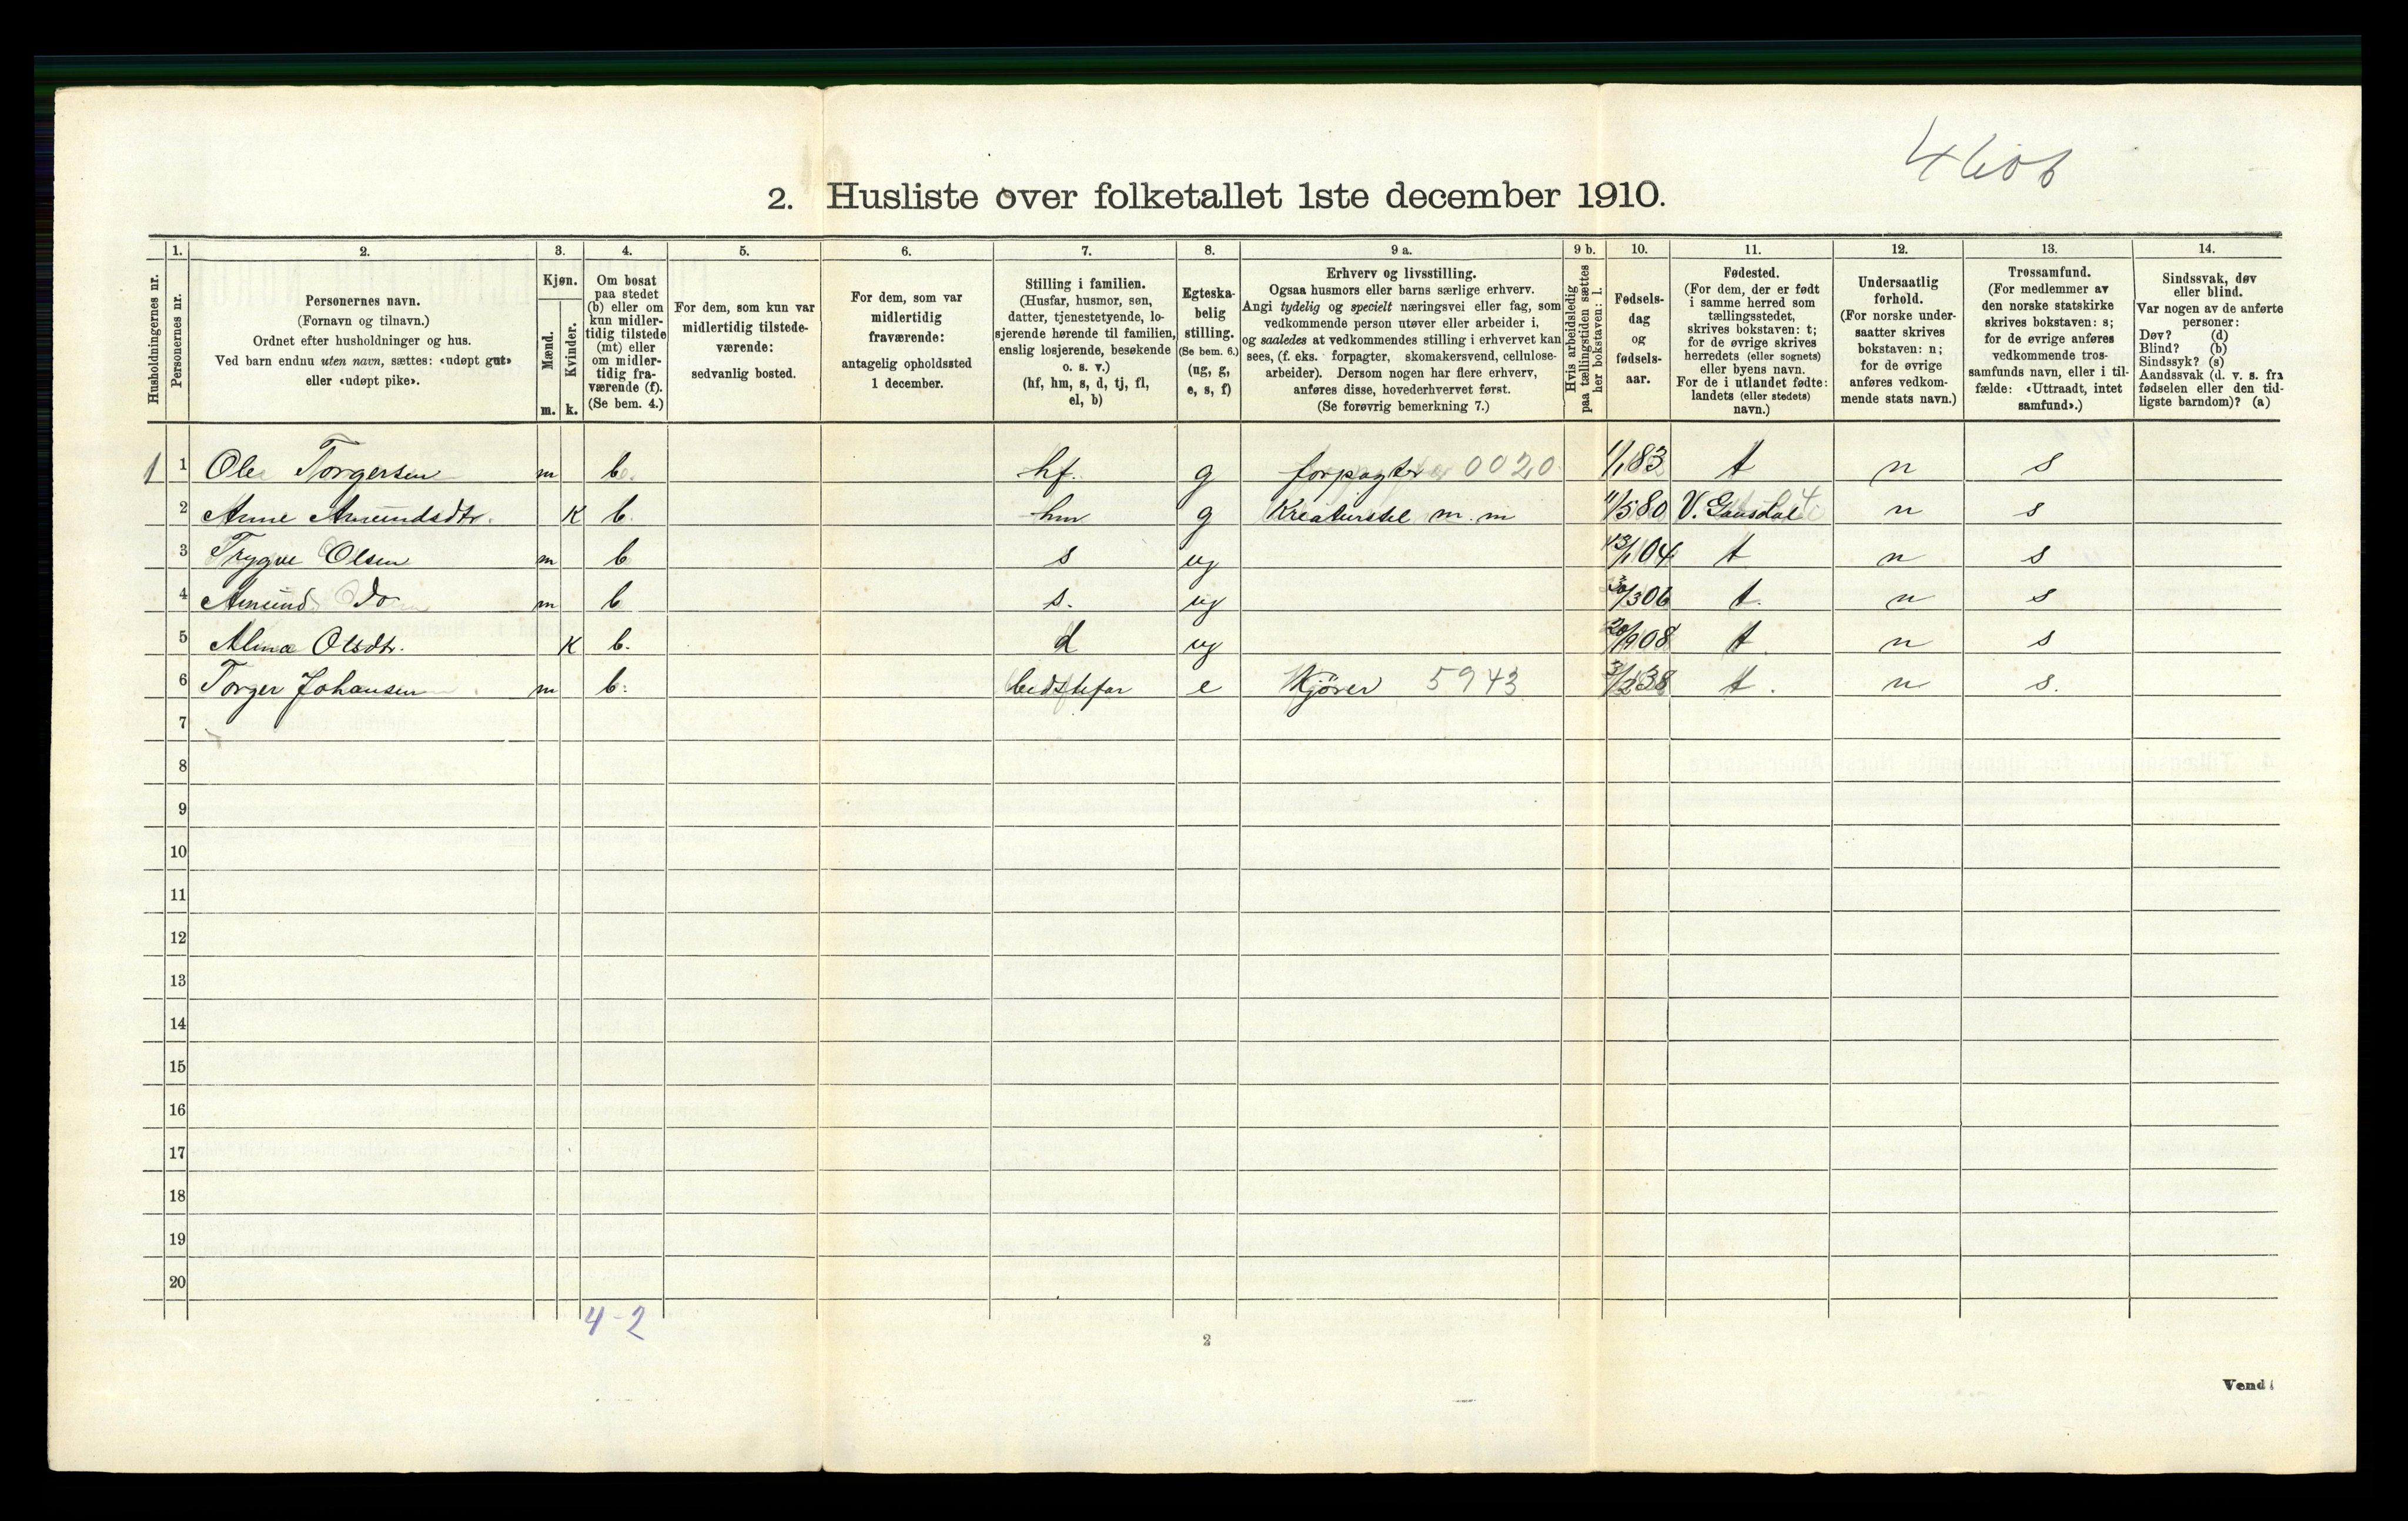 4606
2. Husliste over folketallet 1ste december 1910.
Husholdningernes nr.
1.
Personernes nr.
2.
Personernes navn.
(Fornavn og tilnavn.)
Ordnet efter husholdninger og hus.
Ved barn endnu uten navn, sættes: «udøpt gut»
eller «udøpt pike».
3.
Kjøn.
Mænd.
Kvinder.
m. k.
4.
Om bosat
paa stedet
(b) eller om
kun midler-
tidig tilstede
(mt) eller
om midler-
tidig fra-
værende (f).
(Se bem. 4.)
5.
For dem, som kun var
midlertidig tilstede-
værende:
sedvanlig bosted.
6.
For dem, som var
midlertidig
fraværende:
antagelig opholdssted
1 december.
7.
Stilling i familien.
(Husfar, husmor, søn,
datter, tjenestetyende, lo-
sjerende hørende til familien,
enslig losjerende, besøkende
o. s. v.)
(hf, hm, s, d, tj, fl,
el, b)
8.
Egteska-
belig
stilling.
(Se bem. 6.)
(ug, g,
e, s, f)
9 a.
Erhverv og livsstilling.
Ogsaa husmors eller barns særlige erhverv.
Angi tydelig og specielt næringsvei eller fag, som
vedkommende person utøver eller arbeider i,
og saaledes at vedkommendes stilling i erhvervet kan
sees, (f. eks. forpagter, skomakersvend, cellulose-
arbeider). Dersom nogen har flere erhverv,
anføres disse, hovederhvervet først.
(Se forøvrig bemerkning 7.)
9 b.
Hvis arbeidsledig
paa tællingstiden sættes
her bokstaven: l.
10.
Fødsels-
dag
og
fødsels-
aar.
11.
Fødested.
(For dem, der er født
i samme herred som
tællingsstedet,
skrives bokstaven: t;
for de øvrige skrives
herredets (eller sognets)
eller byens navn.
For de i utlandet fødte:
landets (eller stedets)
navn.)
12.
Undersaatlig
forhold.
(For norske under-
saatter skrives
bokstaven: n;
for de øvrige
anføres vedkom-
mende stats navn.)
13.
Trossamfund.
(For medlemmer av
den norske statskirke
skrives bokstaven: s;
for de øvrige anføres
vedkommende tros-
samfunds navn, eller i til-
fælde: «Uttraadt, intet
samfund».)
14.
Sindssvak, døv
eller blind.
Var nogen av de anførte
personer:
Døv? (d)
Blind? (b)
Sindssyk? (s)
Aandssvak (d. v. s. fra
fødselen eller den tid-
ligste barndom)? (a)
1 1 Ole Torgersen m b. hf. g forpagter 0020 1/1 83 t n s
2 Anne Amundsdtr. K b. hm g Kreaturstel m. m 11/5 80 V. Gausdal n s
3 Trygve Olsen m b s ug 13/1 04 t n s
4 Amund do m b s. ug 30/3 06 t. n s
5 Alma Olsdtr. K b. d ug 20/9 08 t n s
6 Torger Johansen m b. bedstefar e Kjører 5943 3/2 38 t. n s.
7
8
9
10
11
12
13
14
15
16
17
18
19
20
4-2
2
Vend!